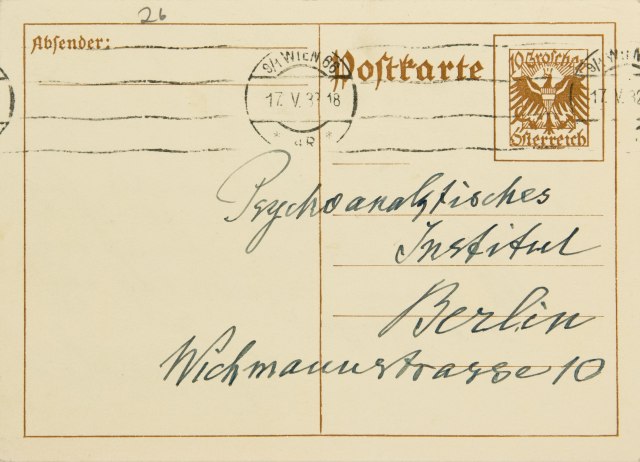 26
Absender:
Postkarte
10 Groschen
Österreich
WIEN 66
17. V. 32 18
* 8B *
WIEN
17. V. 32
Psychoanalytisches
Institut
Berlin
Wichmannstrasse 10